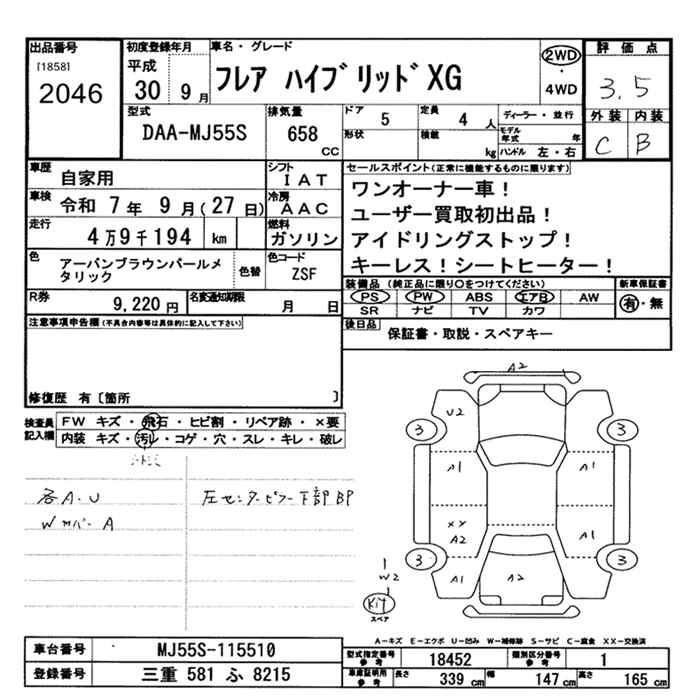 出品番号
[1858]
2046
初度登録年月
平成
30 9月
車名・グレード
フレア ハイブリッドXG
2WD
・
4WD
評価点
3.5
外装 内装
C B
型式
DAA-MJ55S
排気量
658
CC
ドア
5
形状
定員
4人
積載
kg
ディーラー・並行
モデル年式 年
ハンドル 左・右
車歴
自家用
シフト
IAT
車検
令和 7年 9月(27日)
冷房
AAC
走行
4万9千194 km
燃料
ガソリン
色
アーバンブラウンパールメタリック
色替
色コード
ZSF
R券
9,220円
名変通知期限
月 日
セールスポイント(正常に機能するものに限ります)
ワンオーナー車!
ユーザー買取初出品!
アイドリングストップ!
キーレス!シートヒーター!
装備品(純正品に限り○をつけてください)
PS PW ABS エアB AW
SR ナビ TV カワ
新車保証書
有・無
後日品
保証書・取説・スペアキー
注意事項申告欄(不具合内容等は具体的に記入して下さい)
修復歴 有〔箇所 〕
検査員
記入欄
FW キズ・飛石・ヒビ割・リペア跡・×要
内装 キズ・汚レ・コゲ・穴・スレ・キレ・破レ
各A.U
Wカバー A
左センターピラー下部BP
A2
U2
3 3
A1 A1
XX
A2
A1
3 3
A1 A2 A1
W2
Kit
スペア
A-キズ E-エクボ U-凹み W-補修跡 S-サビ C-腐食 XX-交換済
車台番号
MJ55S-115510
登録番号
三重 581 ふ 8215
型式指定番号
参考
18452
類別区分番号
参考
1
車庫証明用
参考
長さ
339 cm
幅
147 cm
高さ
165 cm